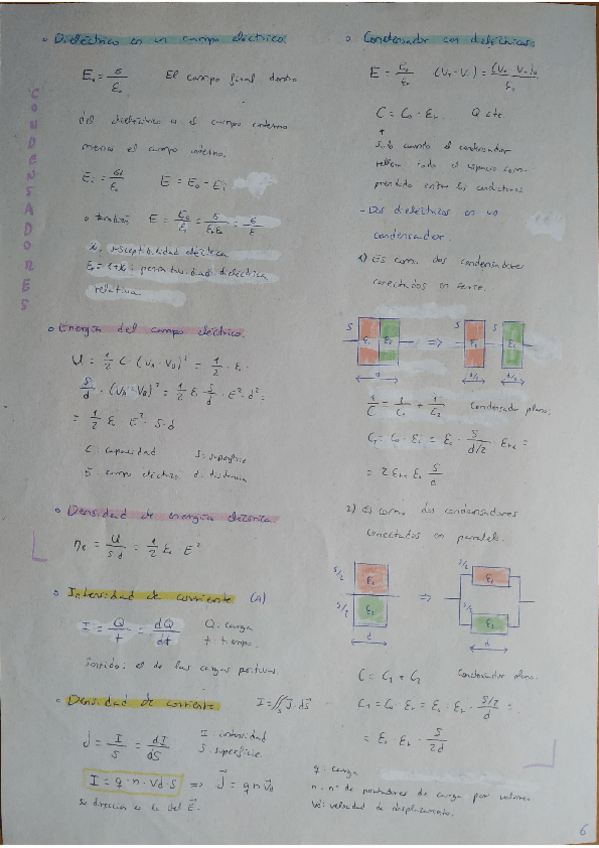 CONDENSADORES
◦ Dieléctrico en un campo eléctrico.
E₀ = σ/ε₀ El campo final dentro
del dieléctrico es el campo externo
menos el campo interno.
Ei = σi/ε₀ E = E₀ - Ei
◦ también E = E₀/εr = σ/ε₀εr = σ/ε
χ: susceptibilidad eléctrica
εr = 1+χ : permitividad dieléctrica
relativa
◦ Energía del campo eléctrico.
U = 1/2 C (VA - VB)² = 1/2 · ε₀ ·
S/d · (VA - VB)² = 1/2 ε₀ S/d · E² · d² =
= 1/2 ε₀ E² · S · d
C: capacidad S: superficie
E: campo eléctrico d: distancia
◦ Densidad de energía eléctrica
ηe = U/S d = 1/2 ε₀ E²
◦ Intensidad de corriente (A)
I = Q/t = dQ/dt Q: carga
t: tiempo
Sentido: el de las cargas positivas.
◦ Densidad de corriente I = ∬s J · ds
J = I/S = dI/dS I: intensidad
S: superficie
I = q · n · Vd · S ⇒ J = q n Vd
su dirección es la del E.
◦ Condensador con dieléctricos
C = C₀ · εr Q cte.
Solo cuando el condensador
rellena todo el espacio com-
prendido entre los conductores
- Dos dieléctricos en un
condensador.
1) Es como dos condensadores
conectados en serie.
S ε₁ ε₂ ⇒ S ε₁ S ε₂
d d/2 d/2
1/C = 1/C₁ + 1/C₂ Condensador plano:
= 2 εr₁ ε₀ S/d
2) Es como dos condensadores
conectados en paralelo.
S/2 ε₁ ⇒ S/2 ε₁
S/2 ε₂ S/2 ε₂
d d
C = C₁ + C₂ Condensador plano:
C₁ = C₀ · εr = ε₀ · εr · S/2/d =
= ε₀ · εr · S/2d
q: carga
n: nº de portadores de carga por volumen
Vd: velocidad de desplazamiento.
6